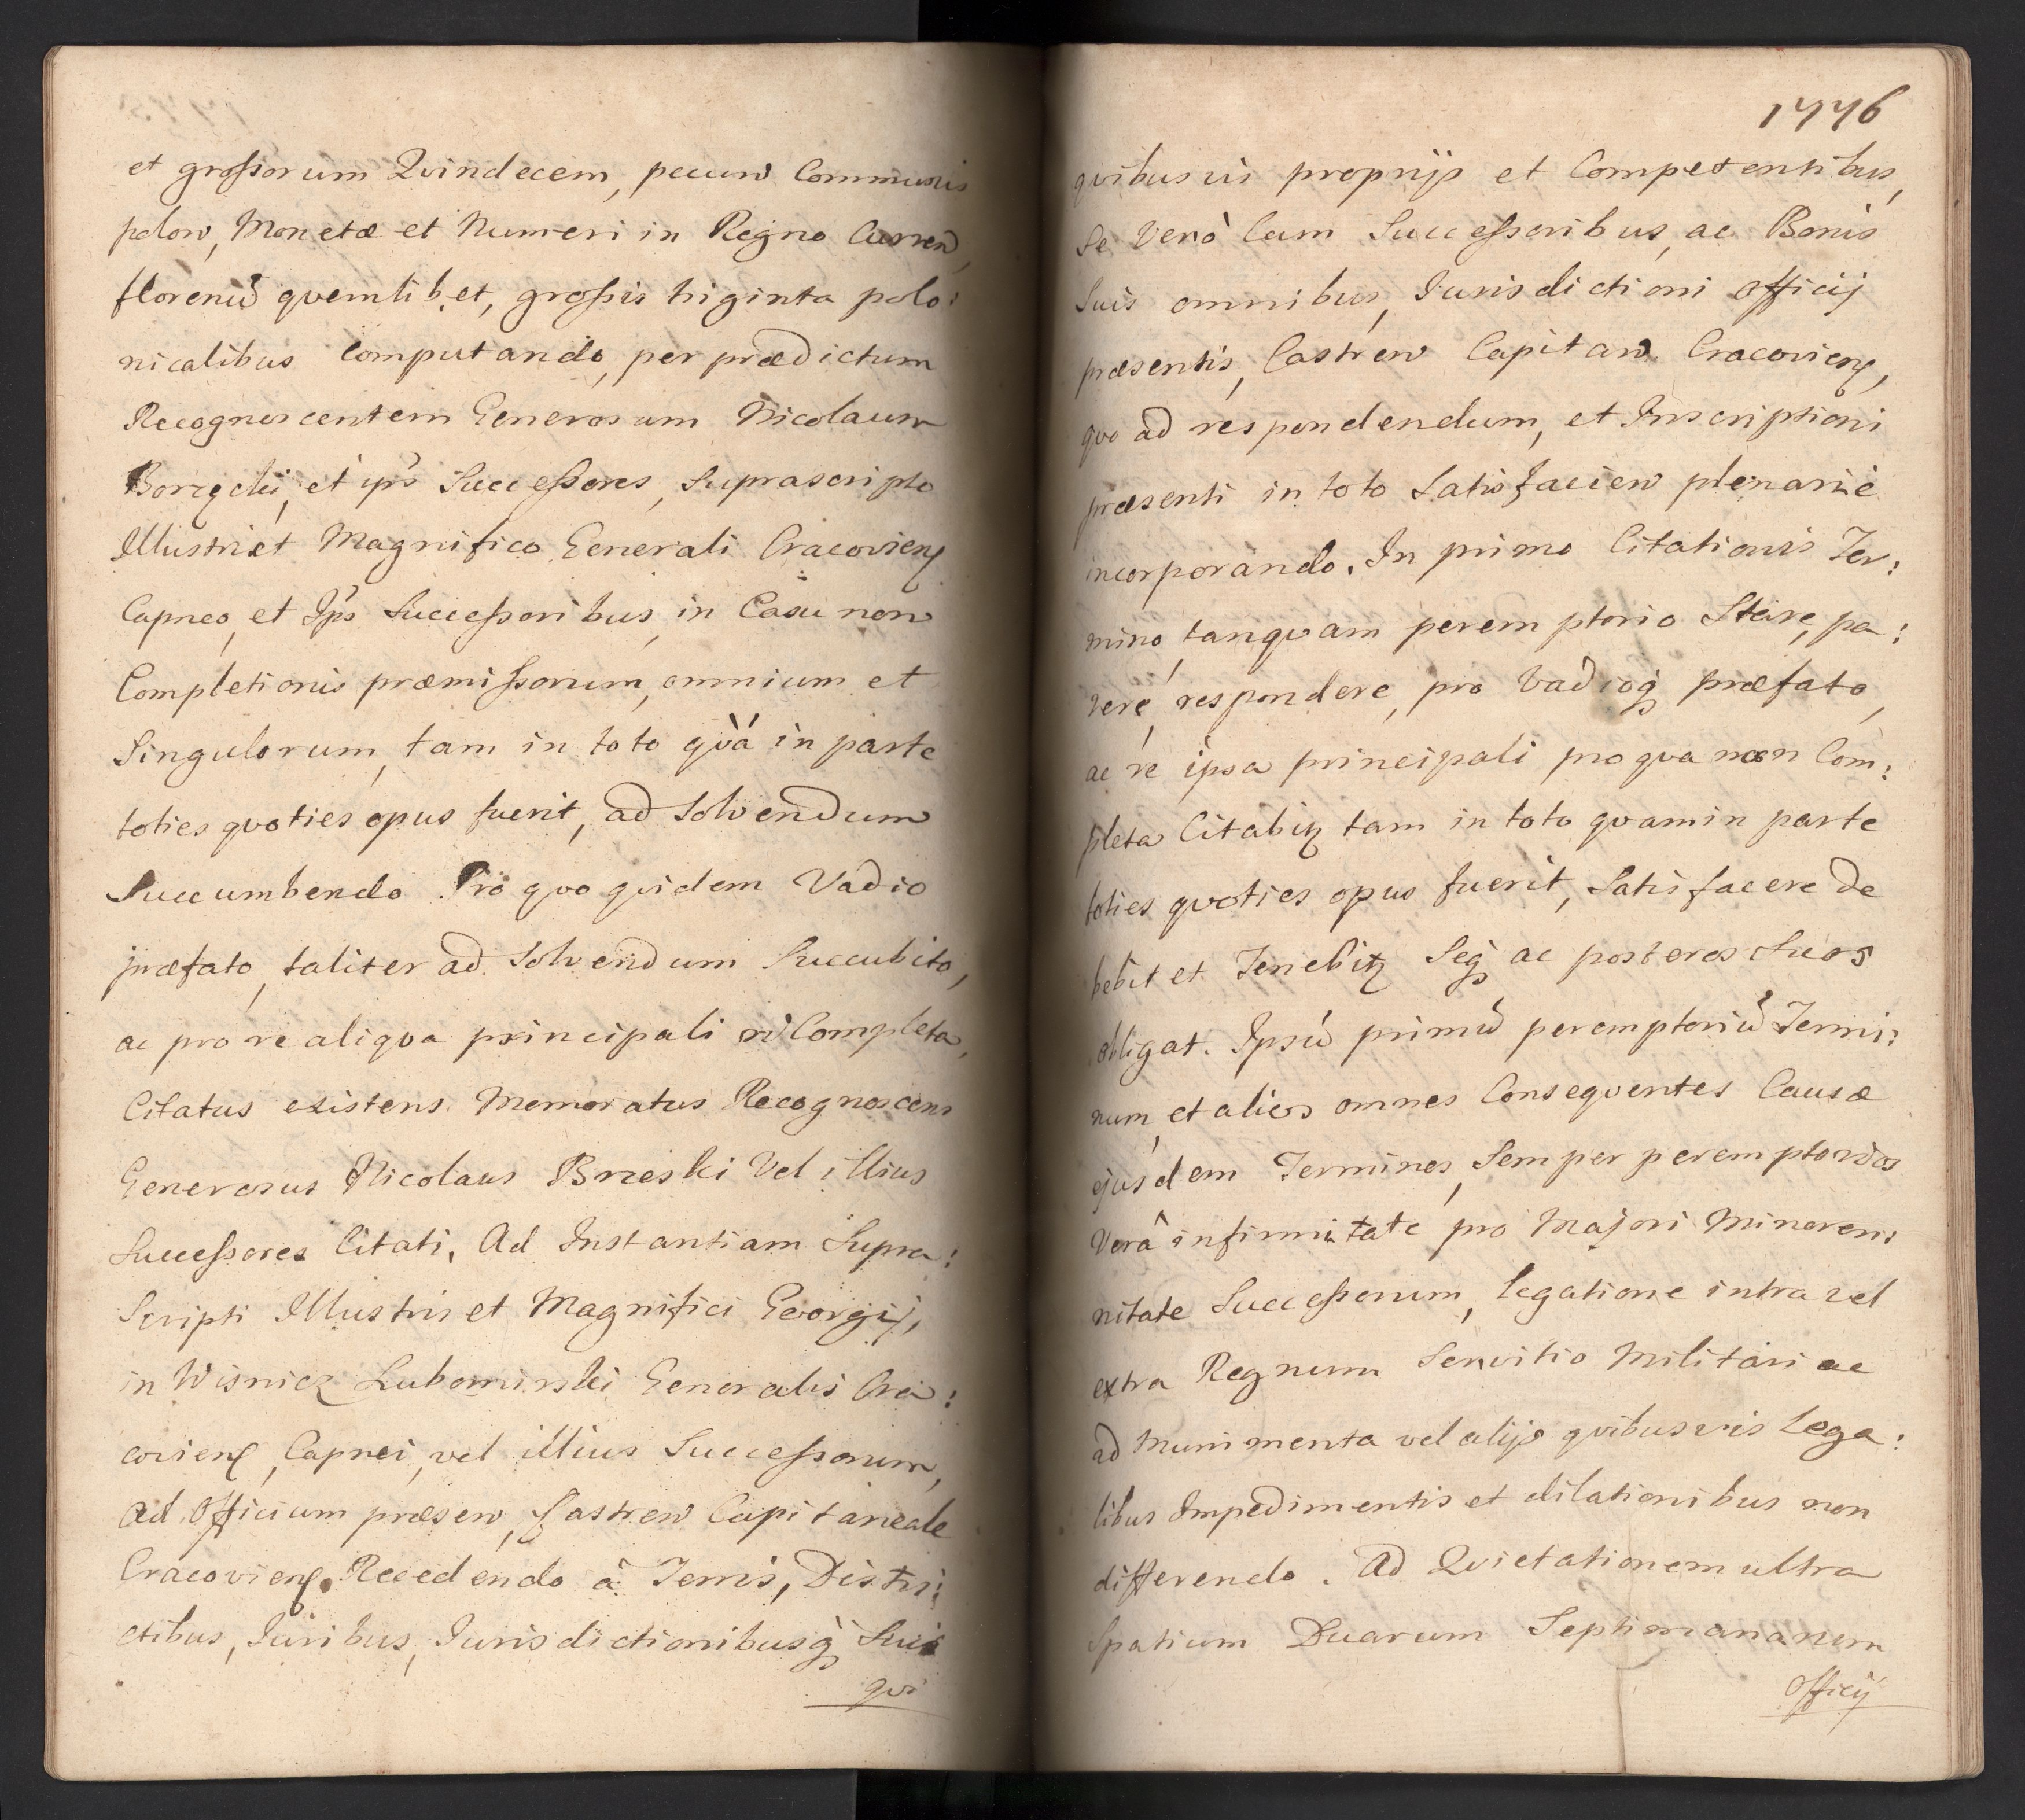 et grossorum Qvindecem, pecun Communis
polon, Monetæ et Numeri in Regno Curren,
florenū qvemlibet, grossis triginta polo:
nicalibus Computando, per prædictum
Recognoscentem Generosum Nicolaum
et ips Successores, Suprascripto
Illustri et Magnifico Generali Cracovien
Capneo, et Ips Successoribus, in Casu non
Completionis præmissorum, omnium et
Singulorum, tam in toto qvà in parte
toties qvoties opus fuerit, ad Solvendum
Succumbendo. Pro qvo qvidem Vadio
præfato, taliter ad Solvendum Succubito,
ac pro re aliqva principali nō Completa,
Citatus existens Memoratus Recognoscens
Generosus Nicolaus Brzeski Vel illius
Successores Citati, Ad Instantiam Supra:
Scripti Illustris et Magnifici Georgij,
in Wisnicz Lubomirski Generalis Cra:
covien, Capnei, vel illius Successorum,
ad Officium præsen, Castren Capitaneale
Cracovien. Recedendo à Terris, Distri:
ctibus, Juribus, Jurisdictionibusq Suis
qvi
1776
qvibusvis proprijs et Competentibus,
Se Verò Cum Successoribus, ac Bonis
Suis omnibus, Jurisdictioni Officij
præsentis, Castren Capitan Cracovien,
qvo ad respondendum, et Inscriptioni
præsenti in toto Satisfacien plenariè
incorporando. In primo Citationis Ter:
mino, tanqvam peremptorio Stare, pa:
rere, respondere, pro Vadioq præfato,
ac re ipsa principali pro qva non Com:
pleta Citabitz tam in toto qvam in parte
toties qvoties opus fuerit, Satisfacere de
bebit et Tenebitz Seq ac posteros Suos
obligat. Ipsū primū peremptoriū Termi:
num, et alios omnes Conseqventes Causæ
ejusdem Terminos, Semper peremptorios
Verâ infirmitate pro Majori Minoren:
nitate Successorum, legatione intra vel
extra Regnum Servitio Militari ac
ad Munimenta vel alijs qvibusvis Lega:
libus Impedimentis et dilationibus non
differendo. Ad Qvietationem ultra
Spatium Duarum Septimanarum
Officij